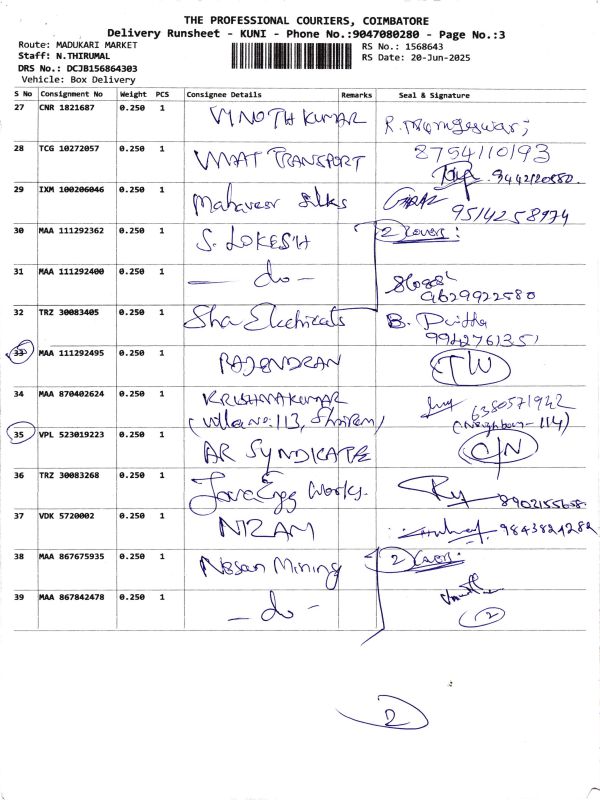 THE PROFESSIONAL COURIERS, COIMBATORE
Delivery Runsheet - KUNI - Phone No.:9047080280 - Page No.:3
Route: MADUKARI MARKET
Staff: N.THIRUMAL
DRS No.: DCJB156864303
Vehicle: Box Delivery
RS No.: 1568643
RS Date: 20-Jun-2025
S No Consignment No Weight PCS Consignee Details Remarks Seal & Signature
27 CNR 1821687 0.250 1 VINOTH KUMAR
28 TCG 10272057 0.250 1 VMAT TRANSPORT 8754110193
9442120580
29 IXM 100206046 0.250 1 Mahaveer Silks 9514258974
30 MAA 111292362 0.250 1 S. LOKESH 2 Covers:
31 MAA 111292400 0.250 1 — do — 9629922580
32 TRZ 30083405 0.250 1 Sha Electricals B.
9942761351
33 MAA 111292495 0.250 1 RAJENDRAN
34 MAA 870402624 0.250 1 KRISHNAKUMAR 6380571942
(Villa No: 113, Shriram) (Neighbour - 114)
35 VPL 523019223 0.250 1 AR SYNDICATE C/N
36 TRZ 30083268 0.250 1 Java Engg Works. 8902155658
37 VDK 5720002 0.250 1 NIZAM 9843824282
38 MAA 867675935 0.250 1 Nissan Mining 2 Covers:
39 MAA 867842478 0.250 1 — do — 2
2